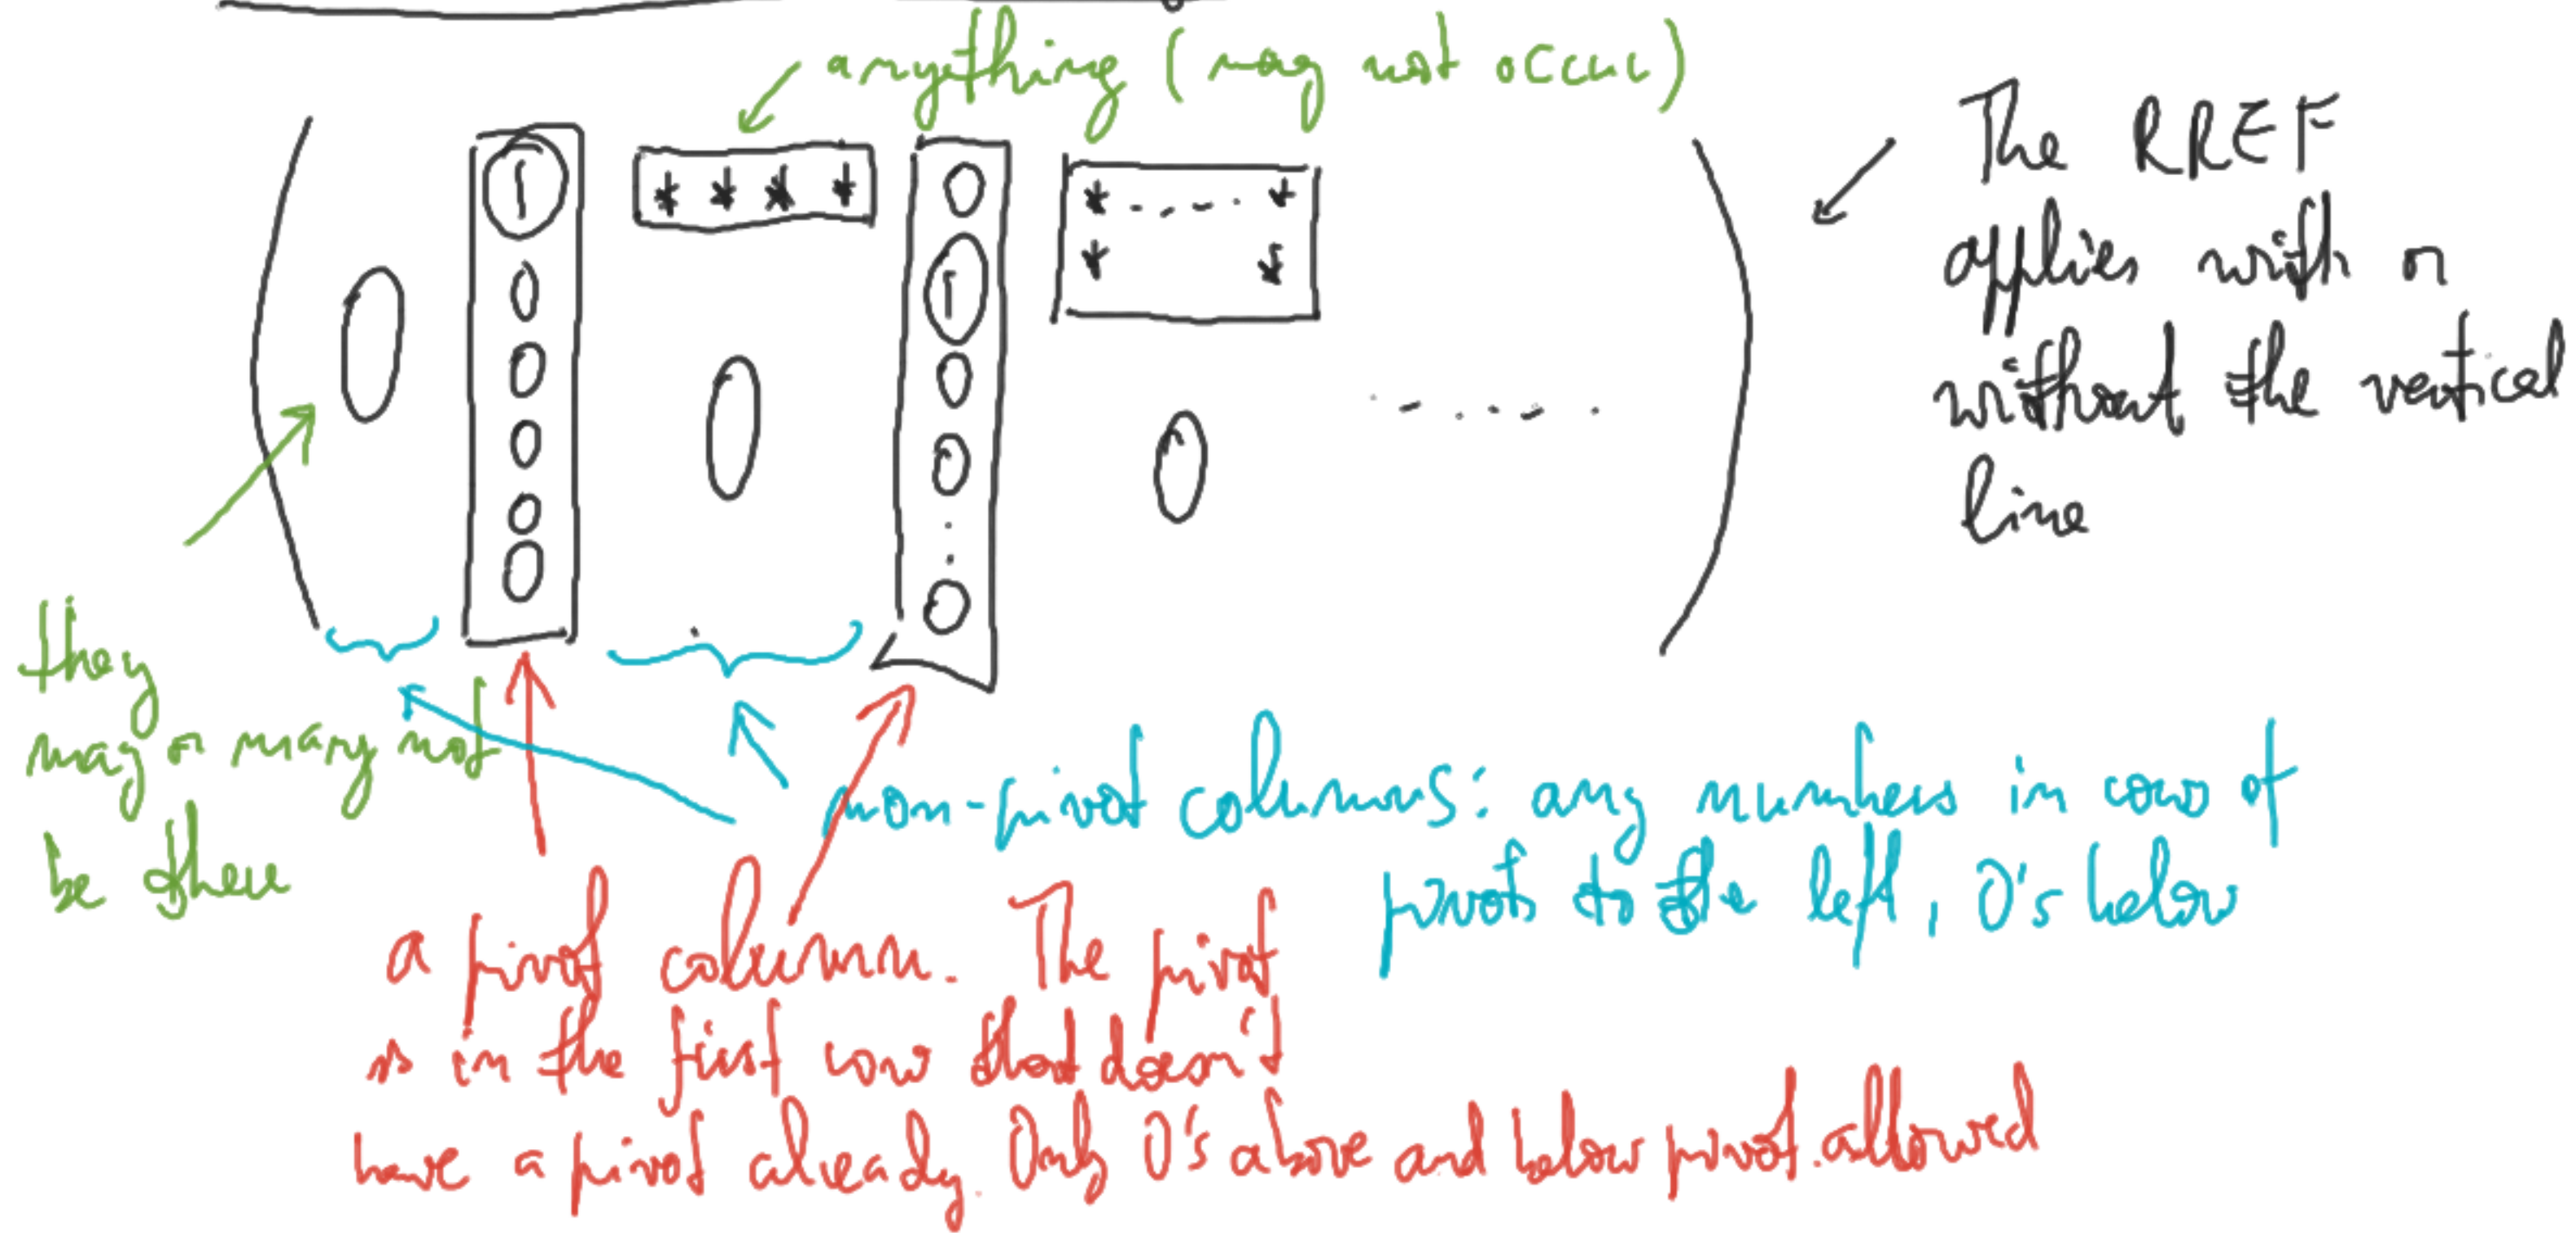 anything (may not occur)
The RREF
applies with or
without the vertical
line
1 * * * * 0 * - - - - *
0 1 * *
0 0 0 0 0
0 0
0
0 0
they
may or many not
be there
non-pivot columns: any numbers in rows of
pivots to the left, 0's below
a pivot column. The pivot
is in the first row that doesn't
have a pivot already. Only 0's above and below pivot allowed